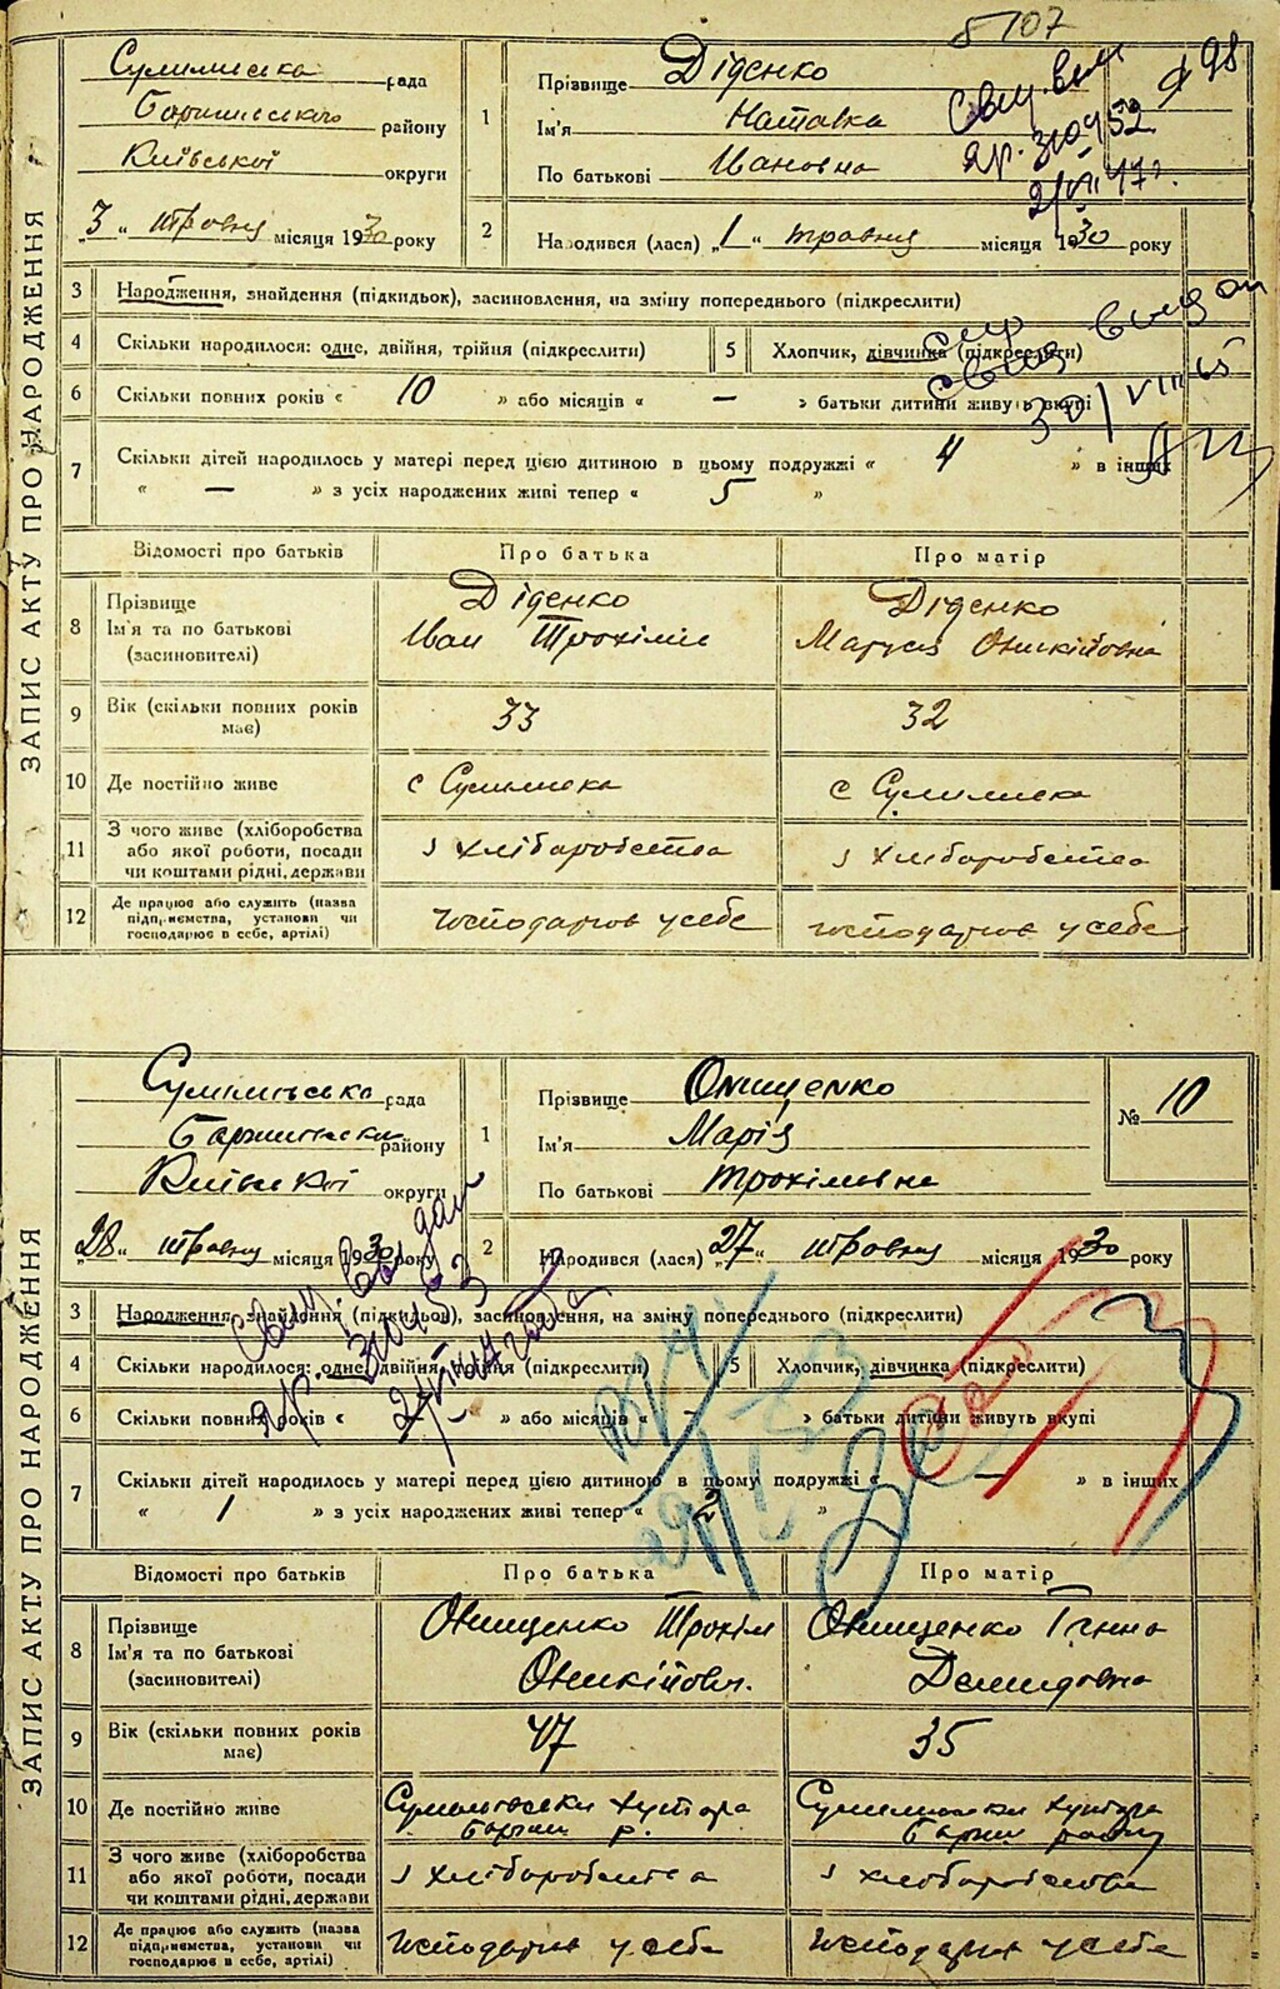 107
ЗАПИС АКТУ ПРО НАРОДЖЕННЯ
Сулимівська рада
Баришівського району
Київської округи
„3“ травня місяця 1930 року
1 Прізвище Діденко
Ім'я Наталка
По батькові Ивановна
98
2 Народився (лася) „1“ травня місяця 1930 року
3 Народження, знайдення (підкидьок), засиновлення, на зміну попереднього (підкреслити)
4 Скільки народилося: одне, двійня, трійня (підкреслити)
5 Хлопчик, дівчинка (підкреслити)
6 Скільки повних років « 10 » або місяців « — » батьки дитини живуть вкупі
7 Скільки дітей народилось у матері перед цією дитиною в цьому подружжі « 4 » в інших
« — » з усіх народжених живі тепер « 5 »
Відомості про батьків Про батька Про матір
8 Прізвище Діденко Діденко
Ім'я та по батькові Иван Трохіміч Маруся Оникійовна
(засиновителі)
9 Вік (скільки повних років має) 33 32
10 Де постійно живе с Сулимовка с Сулимовка
11 З чого живе (хліборобства або якої роботи, посади чи коштами рідні, держави з хліборобства з хліборобства
12 Де працює або служить (назва підприємства, установи чи господарює в себе, артілі) господарює у себе господарює у себе
ЗАПИС АКТУ ПРО НАРОДЖЕННЯ
Сулимівська рада
району
Київської округи
„28“ травня місяця 1930 року
1 Прізвище Онищенко
Ім'я Марія
По батькові Трохімовна
№ 10
2 Народився (лася) „27“ травня місяця 1930 року
3 Народження, знайдення (підкидьок), засиновлення, на зміну попереднього (підкреслити)
4 Скільки народилося: одне, двійня, трійня (підкреслити)
5 Хлопчик, дівчинка (підкреслити)
6 Скільки повних років « » або місяців « — » батьки дитини живуть вкупі
7 Скільки дітей народилось у матері перед цією дитиною в цьому подружжі « — » в інших
« 1 » з усіх народжених живі тепер « 2 »
Відомості про батьків Про батька Про матір
8 Прізвище Онищенко Трохім Онищенко Ганна
Ім'я та по батькові Оникійович. Демидовна
(засиновителі)
9 Вік (скільки повних років має) 47 35
10 Де постійно живе хутора хутора
11 З чого живе (хліборобства або якої роботи, посади чи коштами рідні, держави з хліборобства з хліборобства
12 Де працює або служить (назва підприємства, установи чи господарює в себе, артілі) господарює у себе господарює у себе